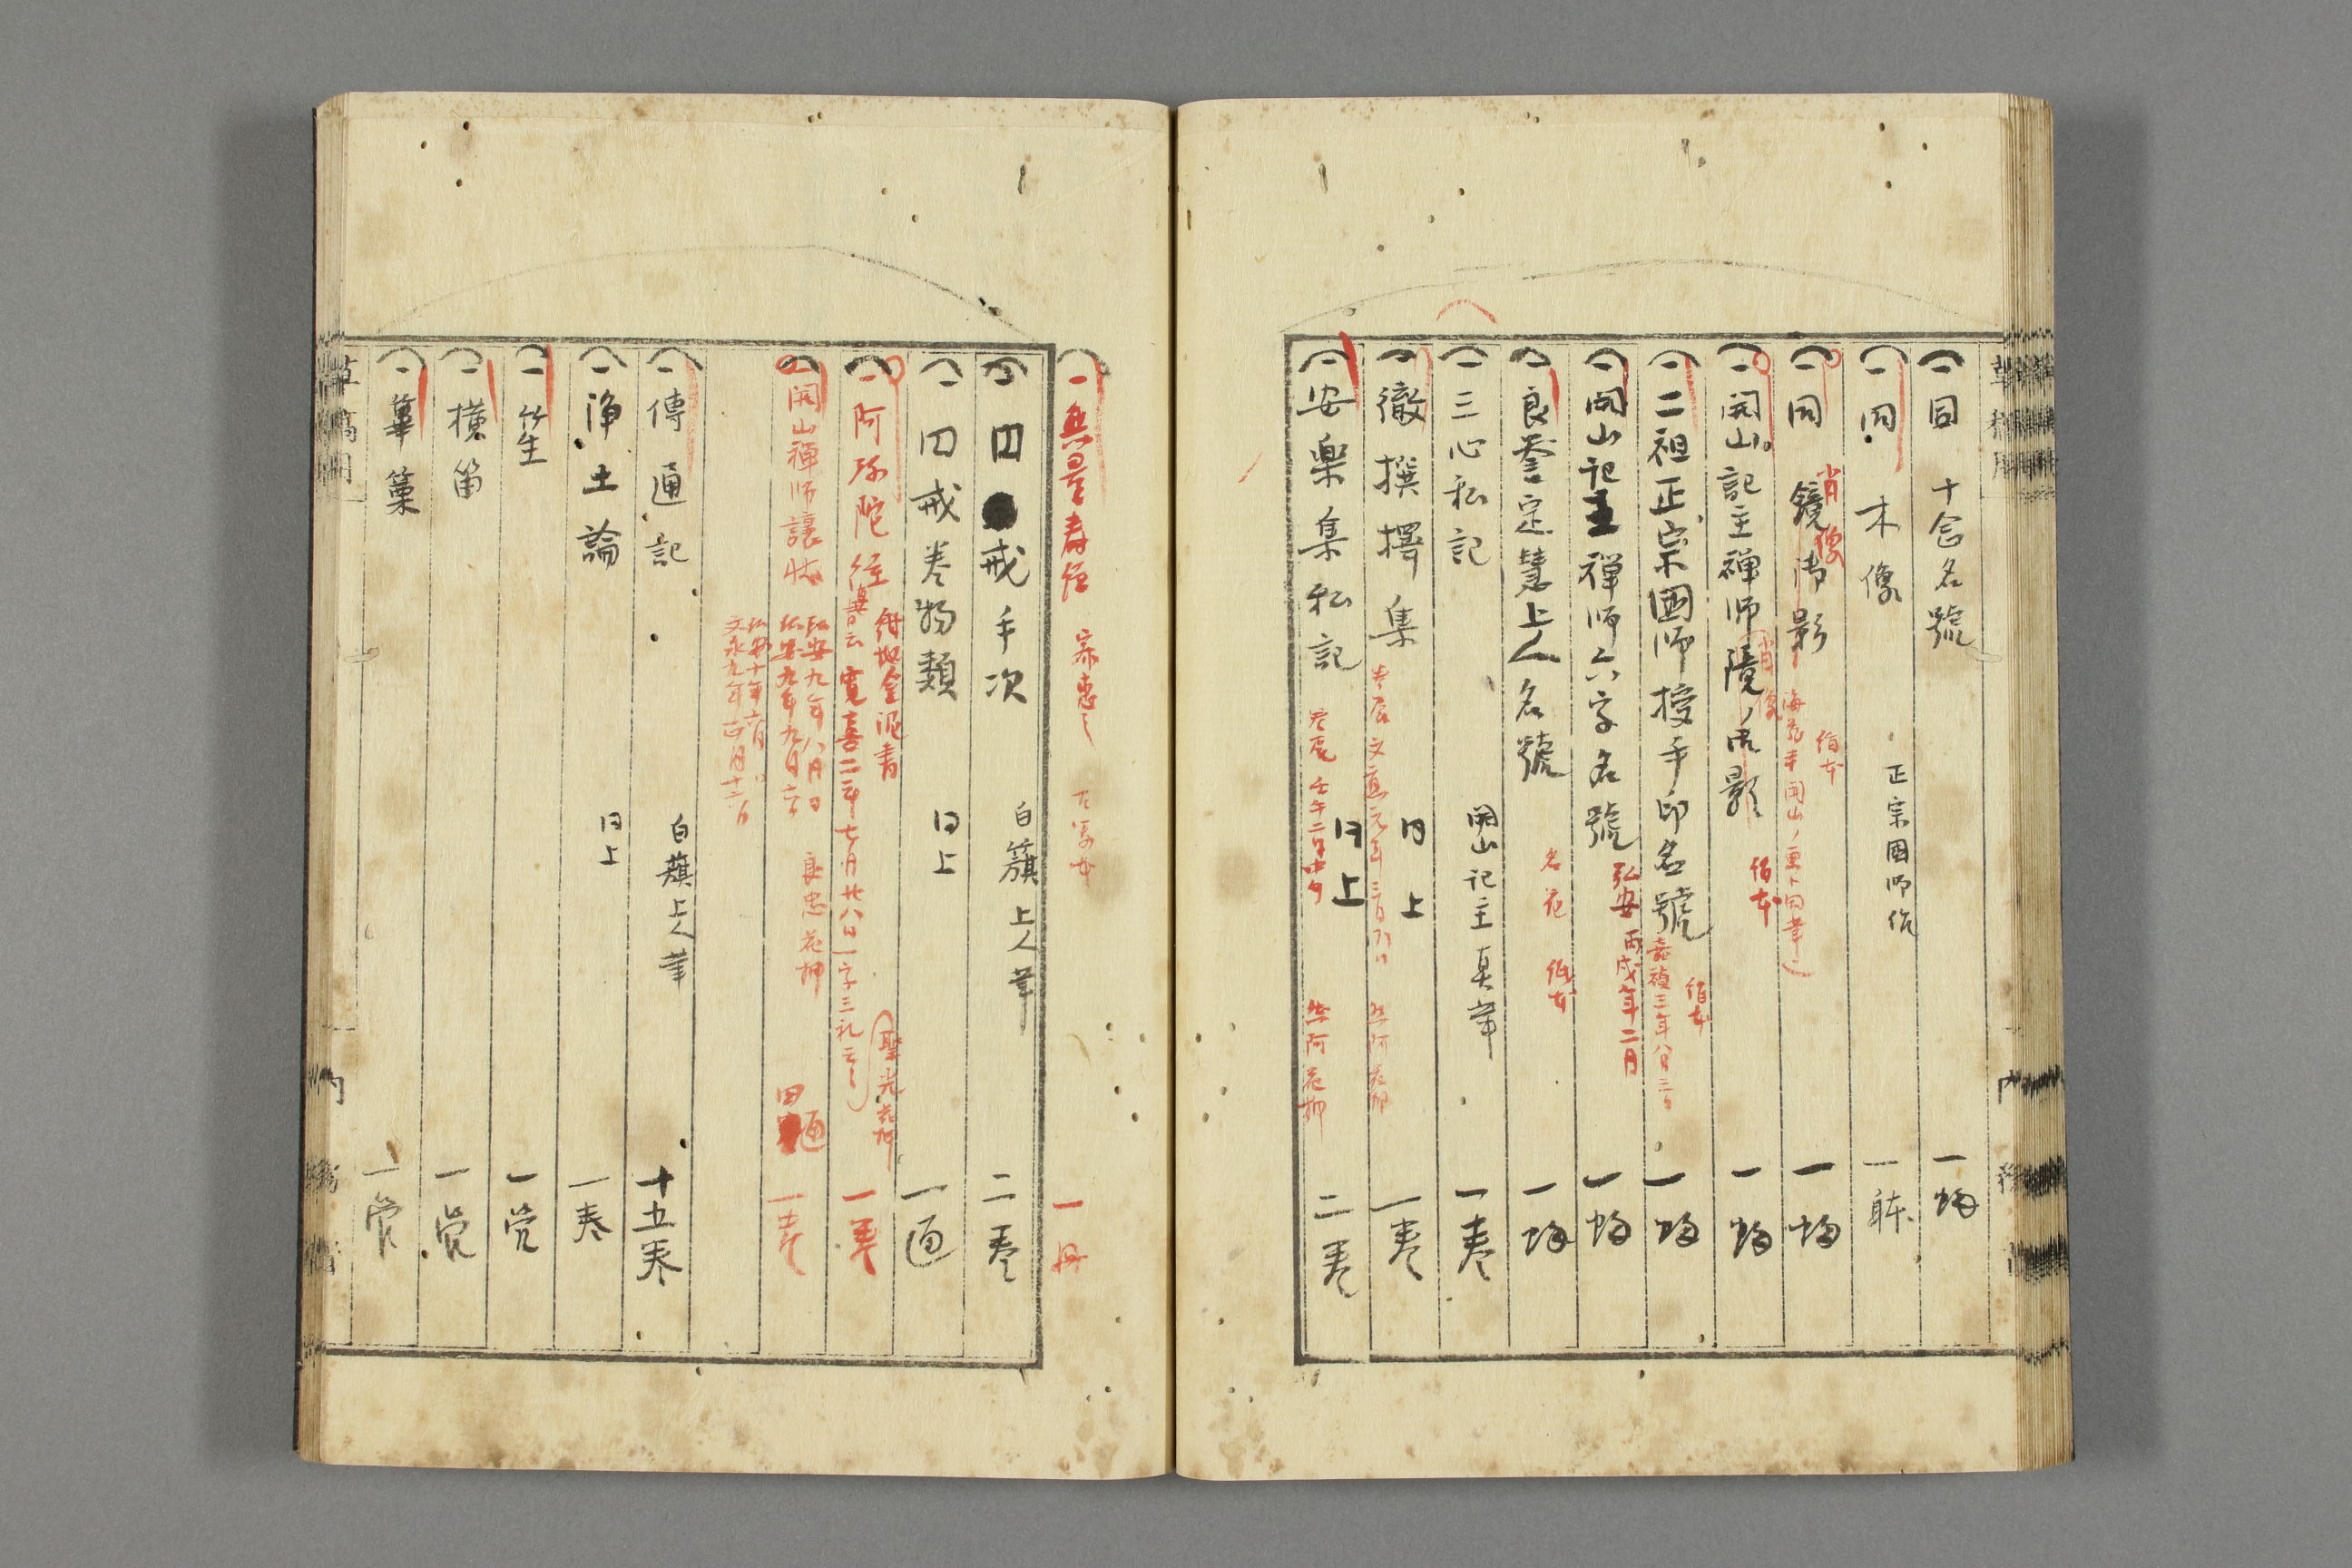 一同 十念名號 一幅
一同 木像 正宗國师作 一躰
一同 鏡御影 一幅
肖像
伯本
一開山記主禅师鏡ノ御影 一幅
肖像
伯本
一二祖正宗國师授手印名號 一幅
嘉禎三年八月三日
伯本
一開山记主禅师六字名號 一幅
弘安丙戌年二月
一良誉定慧上人名號 一幅
名花
伯本
一三心私記 開山记主真筆 一巻
一徹撰擇集 同上 一巻
文應元年三月
然阿花押
一安楽集私記 同上 二巻
壬午二月中旬
然阿花押
一無量寿経 一冊
一円戒手次 白籏上人筆 二巻
一円戒巻物類 同上 一通
一阿弥陀経 一巻
紺地金泥書
奥書云寛喜二年七月廿八日一字三礼云々
聖光花押
一開山禅师譲状 一巻
弘安九年八月
弘安九年九月
弘安十年六月
文永九年正月十六日
良忠花押
四通
一傳通記 白籏上人筆 十五巻
一浄土論 同上 一巻
一笙 一管
一横笛 一管
一篳篥 一管
草稿用